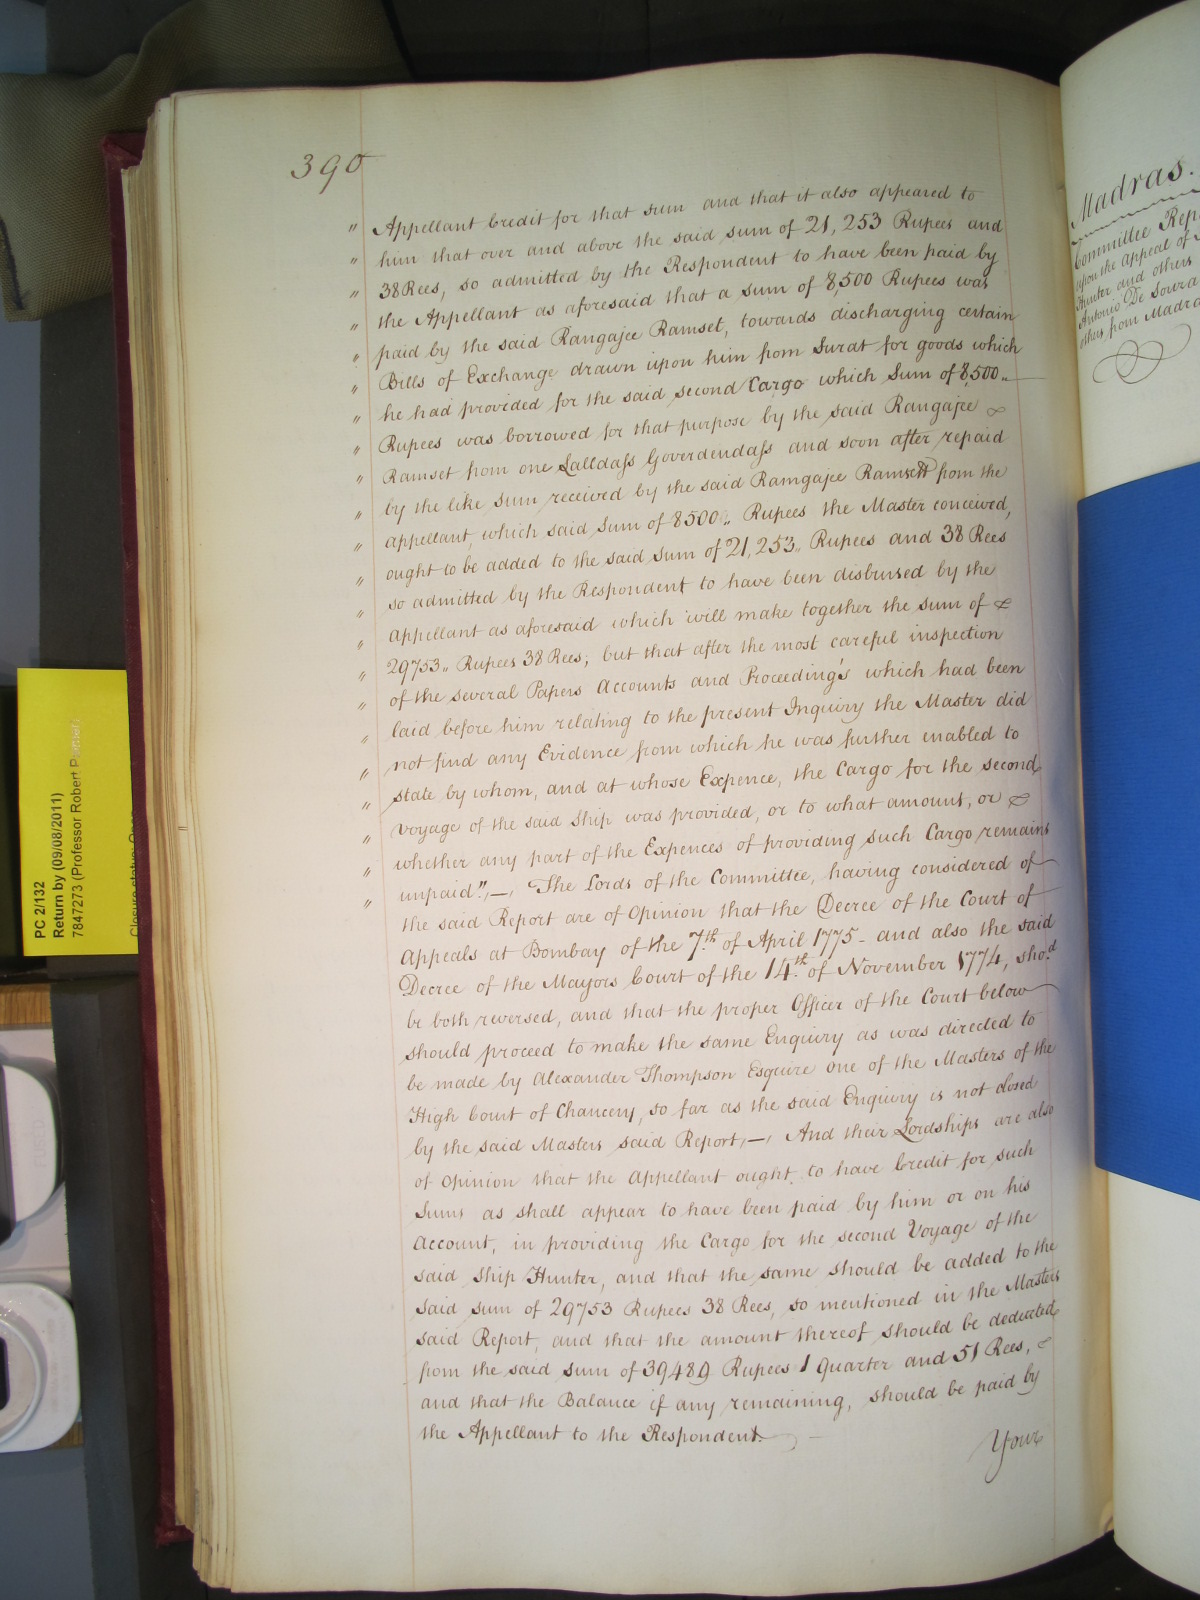 390
" Appellant Credit for that sum and that it also appeared to
" him that over and above the said sum of 21,253 Rupees and
" 38 Rees, so admitted by the Respondent to have been paid by
" the Appellant as aforesaid that a sum of 8,500 Rupees was
" paid by the said Rangajee Ramset, towards discharging certain
" Bills of Exchange drawn upon him from Surat for goods which
" he had provided for the said second Cargo which Sum of 8,500„
" Rupees was borrowed for that purpose by the said Rangajee
" Ramset from one Lalldass Goverdendass and soon after repaid
" by the like sum received by the said Ramgajee Ramsett from the
" appellant, which said Sum of 8500„ Rupees the Master conceived,
" ought to be added to the said Sum of 21,253„ Rupees and 38 Rees
" so admitted by the Respondent to have been disbursed by the
" Appellant as aforesaid which will make together the sum of
" 29753„ Rupees 38 Rees; but that after the most careful inspection
" of the several Papers Accounts and Proceeding's which had been
" laid before him relating to the present Inquiry the Master did
" not find any Evidence from which he was further enabled to
" state by whom, and at whose Expence, the Cargo for the second
" Voyage of the said Ship was provided, or to what amount, or
" whether any part of the Expences of providing such Cargo remains
" unpaid",—, The Lords of the Committee, having considered of
the said Report are of Opinion that the Decree of the Court of
Appeals at Bombay of the 7.th of April 1775 - and also the said
Decree of the Mayors Court of the 14.th of November 1774, sho.d
be both reversed, and that the proper Officer of the Court below
should proceed to make the same Enquiry as was directed to
be made by Alexander Thompson Esquire one of the Masters of the
High Court of Chancery, so far as the said Enquiry is not closed
by the said Masters said Report,—, And their Lordships are also
of Opinion that the Appellant ought to have Credit for such
Sums as shall appear to have been paid by him or on his
Account, in providing the Cargo for the second Voyage of the
said Ship Hunter, and that the same should be added to the
said sum of 29753 Rupees 38 Rees, so mentioned in the Masters
said Report, and that the amount thereof should be deducted
from the said sum of 39489 Rupees 1 Quarter and 51 Rees,
and that the Balance if any remaining, should be paid by
the Appellant to the Respondent.
Your
Madras.
Committee Rep
upon the Appeal of
Hunter and others
Antonio De Souza
others from Madra
PC 2/132
Return by (09/08/2011)
7847273 (Professor Robert
Closure status: Open